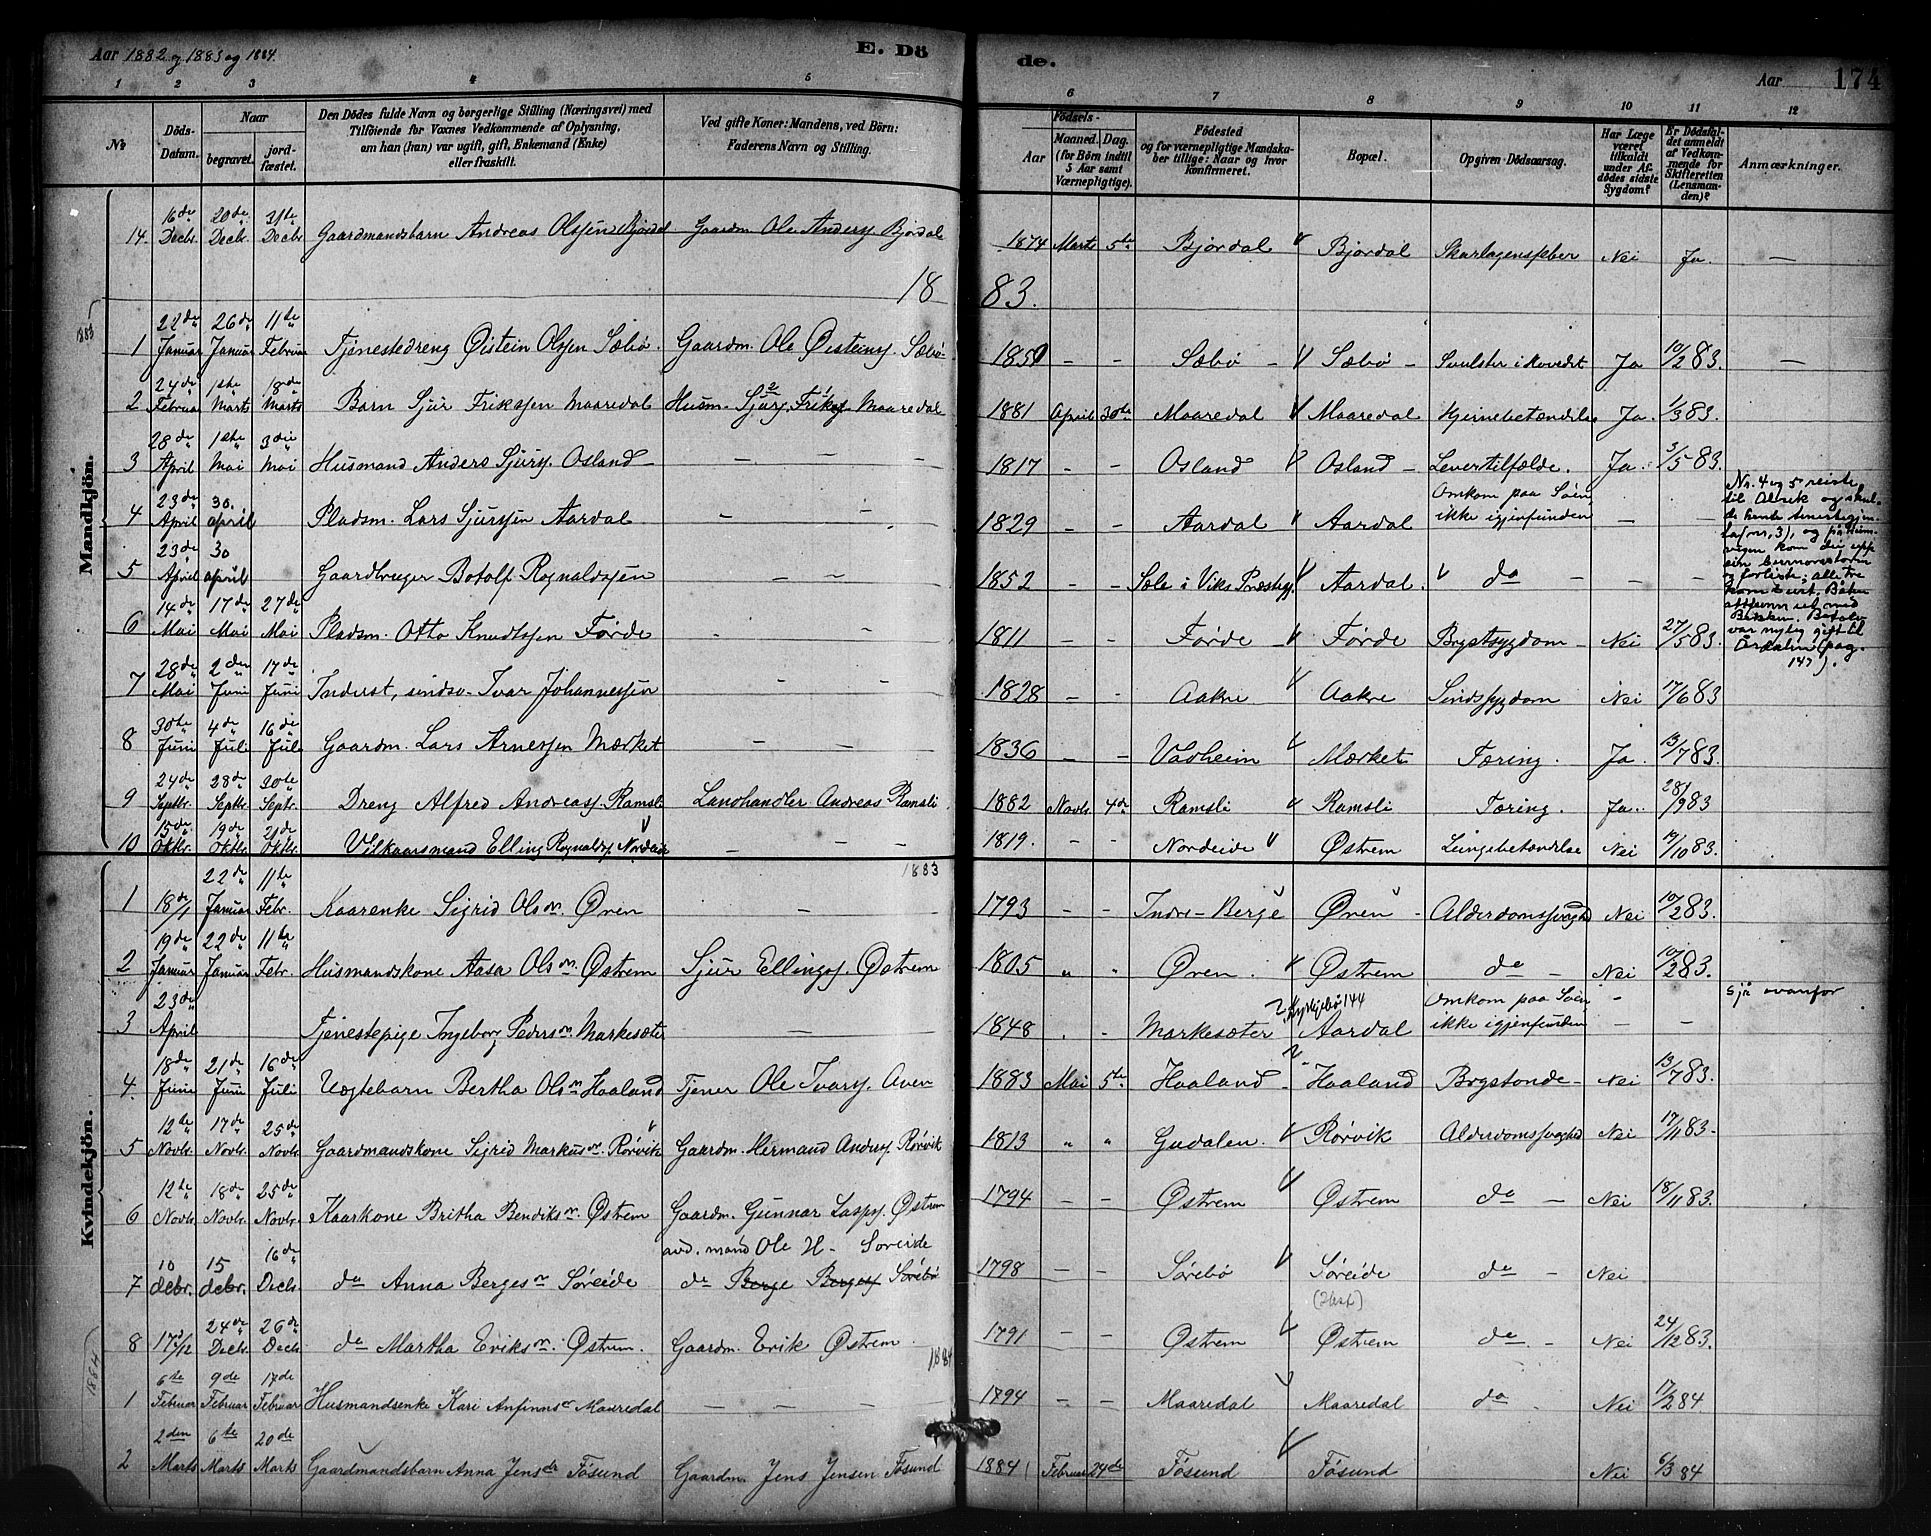 Aar 1882 og 1883 og 1884.
E. Dö
de.
Aar
174
1 2 3 4 5 6 7 8 9 10 11 12
No
Döds-Datum.
Naar
begravet.
jordfæstet.
Den Dödes fulde Navn og borgerlige Stilling (Næringsvei) med
Tilföiende for Voxnes Vedkommende af Oplysning,
om han (hun) var ugift, gift, Enkemand (Enke)
eller fraskilt.
Ved gifte Koner: Mandens, ved Börn:
Faderens Navn og Stilling.
Födsels-
Aar
Maaned. Dag.
(for Börn indtil
5 Aar samt
Værnepligtige).
Födested
og for værnepligtige Mandska-
ber tillige: Naar og hvor
konfirmeret.
Bopæl.
Opgiven Dödsaarsag.
Har Læge
været
tilkaldt
under Af-
dödes sidste
Sygdom?
Er Dödsfal-
det anmeldt
af Vedkom-
mende for
Skifteretten
(Lensman-
den)?
Anmærkninger.
14. 16de Decbr. 20de Decbr. 31te Decbr Gaardmandsbarn Andreas Olssen Bjordal Gaardm. Ole Anderss. Bjordal 1874 Marts 5te Bjordal Bjordal Skarlagensfeber Nei Ja. —
1883.
1883
Mandkjön.
1 22de Januar 26de Januar 11te Februar Tjenestedreng Øistein Olssen Sæbø. Gaardm. Ole Øisteinss. Sæbø 1850 – – Sæbø – Sæbø – Svulster i Hovedet Ja 10/2 83. —
2 24de Februar 1ste Marts 18de Marts Barn Sjur Erikssen Maaredal Husm. Sjurs. Eriks Maaredal 1881 April 30te Maaredal Maaredal Hjernebetændelse Ja. 1/3 83.
3 28de April 1ste Mai 3die Mai Husmand Anders Sjurss. Osland – – – – 1817 – – Osland Osland – Levertilfælde. Ja. 3/5 83.
4 23de April 30. april Pladsm. Lars Sjurssen Aardal – – 1829 – – Aardal Aardal Omkom paa Søen ikke igjenfunden – –
5 23de April 30 april Gaardbruger Botolf Rognaldssen – – 1852 – – Sole i Viks Præstegj. Aardal. do – – –
Nr. 4 og 5 reiste
til Alvik og skul-
de hente tenestegjen-
ta (nr. 3), og på heim-
vegen kom die upp
ein
og forliste; alle tre
kom burt. Båten
ut med
Bakken. Botolv
var nyleg gift til
Årdalen (pag.
147).
6 14de Mai 17de Mai 27de Mai Pladsm. Otto Knudtssen Førde – – 1811 – – Førde Førde Brystsygdom – Nei 27/5 83.
7 28de Mai 2den Juni 17de Juni Inderst, sindsv. Ivar Johannessen – – 1828 – – Aakre Aakre Sindssygdom Nei 17/6 83
8 30te Juni 4de Juli 16de Juli Gaardm. Lars Arnessen Mærket – – – 1836 – – Vadheim Mærket Tæring. Ja. 13/7 83.
9 24de Septbr. 28de Septbr. 30te Septr. Dreng Alfred Andreass. Ramsli Landhandler Andreas Ramsli 1882 Novbr. 4de Ramsli Ramsli Tæring. Ja. 28/9 83
10 15de Oktbr. 19de Oktbr. 21de Oktbr. Vilkaarsmand Elling Rognalds. Nordeide – – – 1819. – – Nordeide Østrem Lungebetændelse Nei 19/10 83.
1883
Kvindekjön.
1 18de/1 22de Januar 11te Febr. Kaarenke Sigrid Olsdn. Øren – – 1793 – – Indre-Berge Øren – Alderdomssvaghed Nei 10/2 83.
2 19de Januar 22de Januar 11te Febr. Husmandskone Aasa Olsdn. Østrem Sjur Ellingss. Østrem 1805 " " Øren. Østrem do – Nei 10/2 83.
3 23de April Tjenestepige Ingeborg Pedersdn. Markesæter – 1848 . . Markesæter ? Kyrkjebø 144 Aardal Omkom paa Søen ikke igjenfunden – – sjå ovanfor
4. 18de Juni 21de Juni 16de Juli Uægtebarn Bertha Olsdn Haaland Tjener Ole Ivarss. Aven 1883 Mai 5te Haaland – Haaland Brystonde – Nei 13/7 83.
5 12te Novbr. 17de Novbr. 25de Novbr. Gaardmandskone Sigrid Markusdn. Rørvik Gaardm. Hermand Anderss. Rørvik 1813 " " Gudalen. Rørvik Alderdomssvaghed Nei 17/11 83.
6 12te Novbr. 18de Novbr. 25de Novbr. Kaarkone Britha Bendiksdn. Østrem Gaardm. Gunnar Lasss. Østrem 1794 – – Østrem Østrem do – Nei 18/11 83.
7 10 decbr. 15 decbr. 16de Decbr. do Anna Bergesdn Søreide and. mand Ole H – Soreide do Berge Bergess Sørebø 1798 – – Sørebø Søreide do – Nei
8 17de/12 24de Decbr. 26de Decbr. do Martha Eriksdn. Østrem. Gaardm. Erik Østrem. 1791 – – Østrem Østrem do – Nei 24/12 83.
1884
1884
1 6te Februar 9de Februar 17de Februar Husmandsenke Kari Anfinnsdr Maaredal – – – – 1794 – – Maaredal Maaredal do Nei 17/2 84.
2 2den Marts 6te Marts 20de Marts Gaardmandsbarn Anna Jensdr Føsund Gaardm. Jens Jensen Føsund 1884 Februar 24de Føsund Føsund Nei 6/3 84